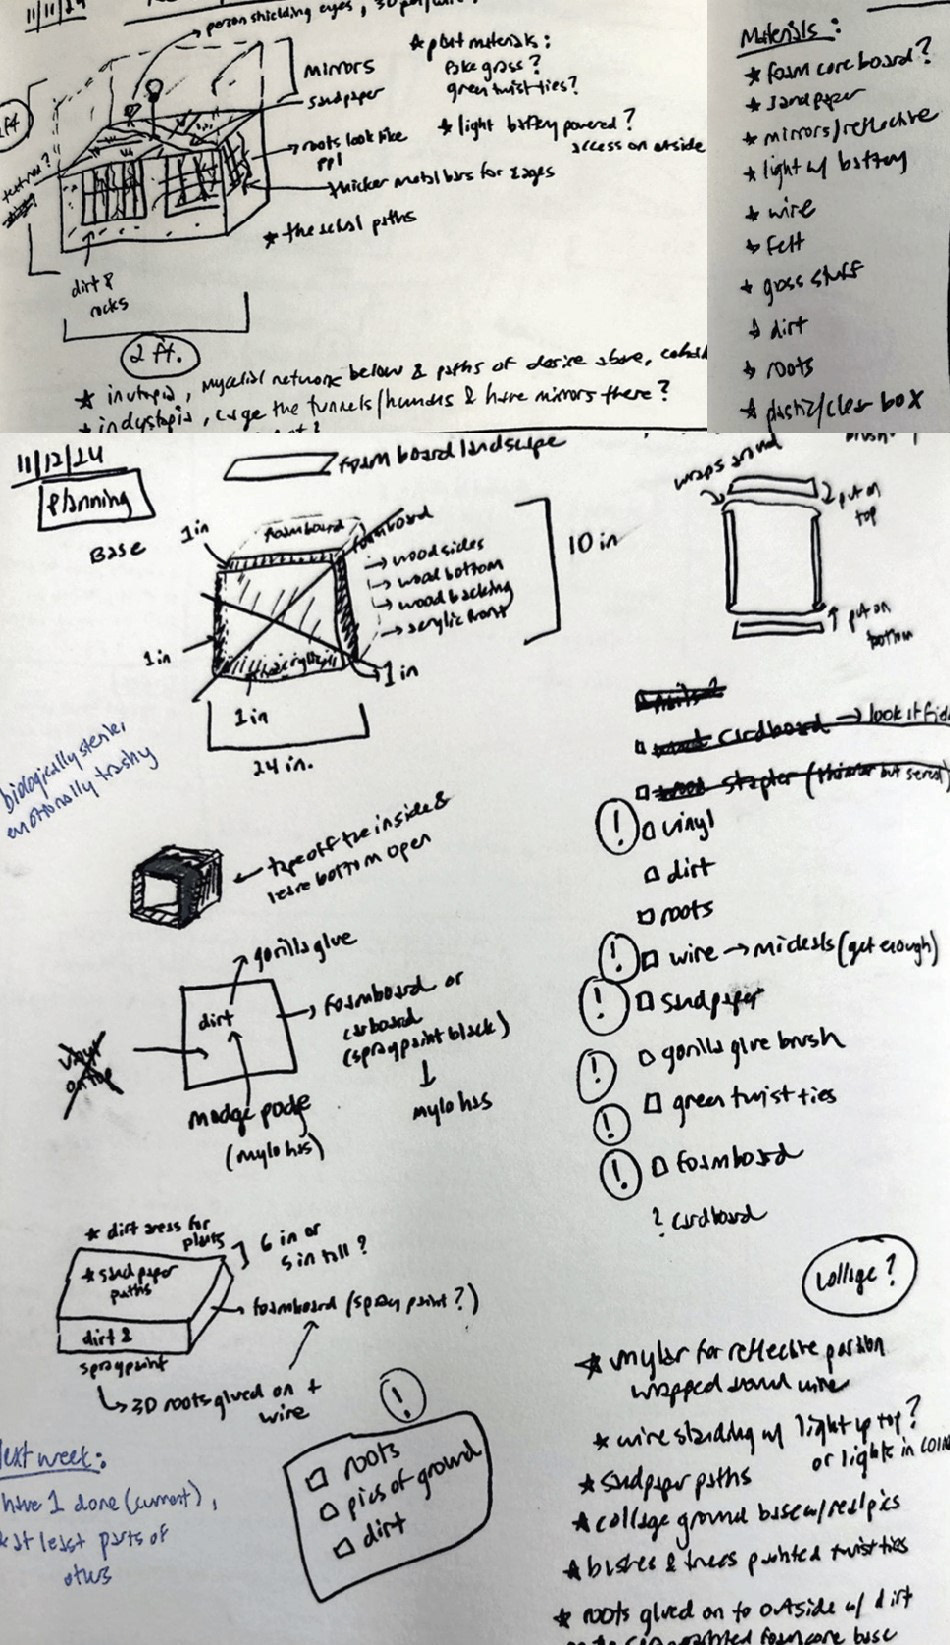 11/11/24
person shielding eyes, 3D
mirrors
sandpaper
roots look like
ppl
thicker metal bars for cages
* the actual paths
dirt &
rocks
2 ft.
* plant materials:
fake grass?
green twist ties?
* light battery powered?
access on outside
* in utopia, mycelial network below & paths of desire above,
* in dystopia, cage the tunnels/humans & have mirrors there?
Materials:
* foam core board?
* sandpaper
* mirrors/reflective
* light w/ battery
* wire
* felt
* grass stuff
* dirt
* roots
* plastic/clear box
11/12/24
Planning
foam board landscape
Base
1 in
foamboard
foamboard
→ wood sides
→ wood bottom
→ wood backing
→ acrylic front
10 in
1 in
1 in
1 in
24 in.
wraps around
put on
top
put on
bottom
biologically sterile,
emotionally trashy
tape off the inside &
leave bottom open
gorilla glue
dirt
foamboard or
carboard
(spraypaint black)
mylo has
vinyl
on top
modge podge
(mylo has)
nails?
cardboard → look it
stapler (thinner but
! vinyl
dirt
roots
! wire → micheals (get enough)
! sandpaper
! gorilla glue brush
! green twist ties
! foamboard
? cardboard
* dirt areas for
plants
* sand paper
paths
6 in or
5 in tall?
foamboard (spray paint?)
dirt &
spraypaint
3D roots glued on +
wire
next week:
have 1 done (current),
at least parts of
others
!
roots
pics of ground
dirt
collage?
* mylar for reflective portion
wrapped around wire
* wire standing w/ light up top?
or lights in
* sandpaper paths
* collage ground base w/ real pics
* bushes & trees painted twist ties
* roots glued on to outside w/ dirt
foamcore base